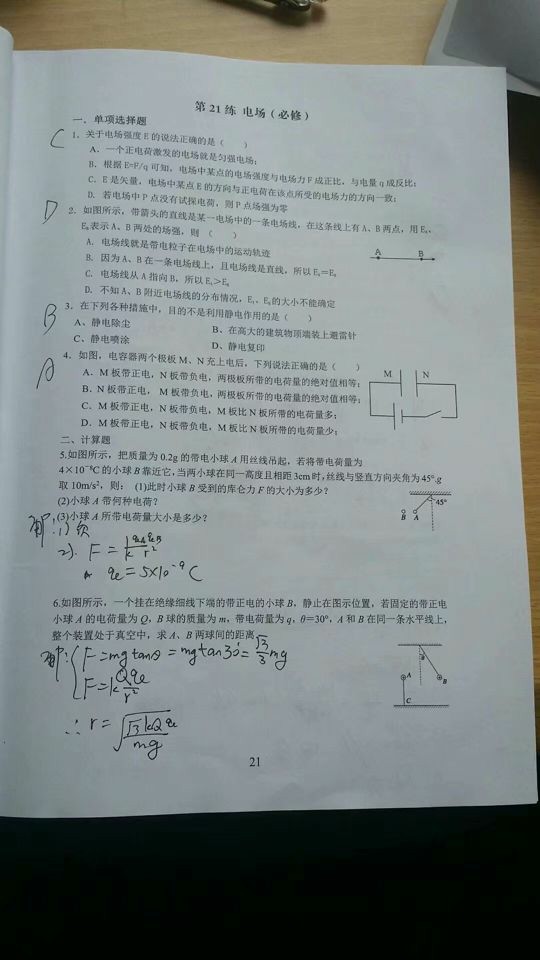 第 21 练 电场（必修）
一．单项选择题
C 1．关于电场强度 E 的说法正确的是（　　）
A．一个正电荷激发的电场就是匀强电场；
B．根据 E=F/q 可知，电场中某点的电场强度与电场力 F 成正比，与电量 q 成反比；
C．E 是矢量，电场中某点 E 的方向与正电荷在该点所受的电场力的方向一致；
D．若电场中 P 点没有试探电荷，则 P 点场强为零
D 2．如图所示，带箭头的直线是某一电场中的一条电场线，在这条线上有 A、B 两点，用 E_A、
E_B 表示 A、B 两处的场强，则（　　）
A．电场线就是带电粒子在电场中的运动轨迹
B．因为 A、B 在一条电场线上，且电场线是直线，所以 E_A=E_B
C．电场线从 A 指向 B，所以 E_A>E_B
D．不知 A、B 附近电场线的分布情况，E_A、E_B 的大小不能确定
A B
B 3．在下列各种措施中，目的不是利用静电作用的是（　　）
A、静电除尘 B、在高大的建筑物顶端装上避雷针
C、静电喷涂 D、静电复印
A 4．如图，电容器两个极板 M、N 充上电后，下列说法正确的是（　　）
A．M 板带正电，N 板带负电，两极板所带的电荷量的绝对值相等；
B．N 板带正电， M 板带负电，两极板所带的电荷量的绝对值相等；
C．M 板带正电，N 板带负电，M 板比 N 板所带的电荷量多；
D．M 板带正电，N 板带负电，M 板比 N 板所带的电荷量少；
M N
二、计算题
5.如图所示，把质量为 0.2g 的带电小球 A 用丝线吊起，若将带电荷量为
4×10⁻⁸C 的小球 B 靠近它，当两小球在同一高度且相距 3cm 时，丝线与竖直方向夹角为 45°.g
取 10m/s²，则： (1)此时小球 B 受到的库仑力 F 的大小为多少？
(2)小球 A 带何种电荷？
(3)小球 A 所带电荷量大小是多少？
45°
B A
解：1) 负
2). F = k q_A q_B / r²
q = 5×10⁻⁹ C
6.如图所示，一个挂在绝缘细线下端的带正电的小球 B，静止在图示位置，若固定的带正电
小球 A 的电荷量为 Q，B 球的质量为 m，带电荷量为 q，θ=30°，A 和 B 在同一条水平线上，
整个装置处于真空中，求 A、B 两球间的距离
θ
A B
C
解： F = mg tanθ = mg tan30° = √3/3 mg
F = k Qq / r²
∴ r = √(√3 kQq / mg)
21